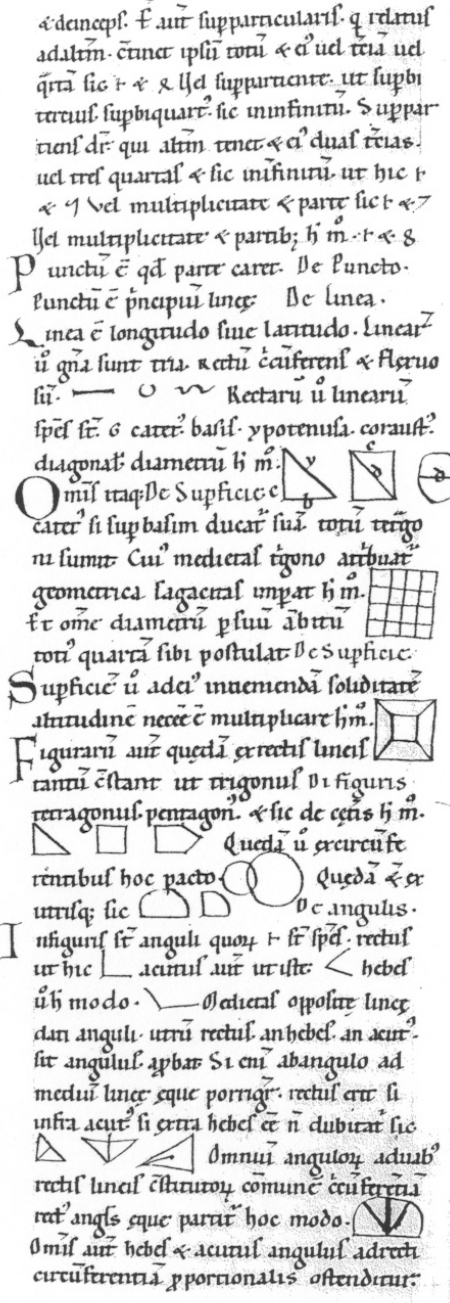 & deinceps. Ē aūt sup̄particularis. q̄ relatus
ad altm̄. c̄tinet ipsū totū & ei᷒ uel t̄ciā uel
q̄rtā sic & Vel sup̄partiente. ut sup̄bi
tercius. sup̄biquart᷒. sic in infinitū. Sup̄par
tiens dr̄. qui altm̄ tenet & ei᷒ duas t̄cias.
uel tres quartas & sic in īfinitū. ut hic
& Vel multiplicitate & parte sic &
Vel multiplicitate & partib; h̄ m̊. & 8
Punctū ē qđ parte caret. De Puncto.
Punctū ē p̄ncipiū lineę. De linea.
Linea ē longitudo siue latitudo. Linearꝝ
ů gn̄a sunt tria. Rectū c̄cūferens & flexuo
sū. Rectarū ů linearū
sp̄es st̄. 6 catet᷒. basis. ypotenusa. coraust᷒.
diagonał. diametrū h̄ m̊.
Omīs itaq; De Supficie.
catet᷒ si sup basim ducat᷒ suā. totū tet̄go
ni sumit. Cui᷒ medietas t̄gono attribuat᷒
geometrica sagacitas imp̄at h̄ m̊.
Et om̄e diametrū p suū ābitū
toti᷒ quartā sibi postulat De Supficie.
Supficiē ů ad ei᷒ inueniendā soliditatē
altitudinē necēe ē multiplicare h̄ m̊.
Figurarū aūt quędā ex rectis lineis
tantū c̄stant ut trigonus Di figuris
tetragonus. pentagon᷒. & sic de cęt̄is h̄ m̊.
Quędā ů ex circūfe
rentibus hoc pacto. Quędā & ex
utrisq; sic De angulis.
In figuris st̄ anguli quoꝝ st̄ sp̄es. rectus
ut hic acutus aūt ut iste. hebes
ů h̄ modo. Medietas opposite lineę
dati anguli. utrū rectus. an hebes. an acut᷒.
sit angulus. aꝓbat. Si eni ab angulo ad
mediū lineę ęque porrigit᷒. rectus erit si
infra acut᷒ si extra hebes ēe n̄ dubitat᷒ sic
Omniū anguloꝝ a duab᷒
rectis lineis c̄stitutoꝝ com̄une c̄cūferētiā
rect᷒ angls ęque partit᷒ hoc modo.
Omīs aūt hebes & acutus angulus ad recti
circūferentiā ꝓportionalis ostenditur.